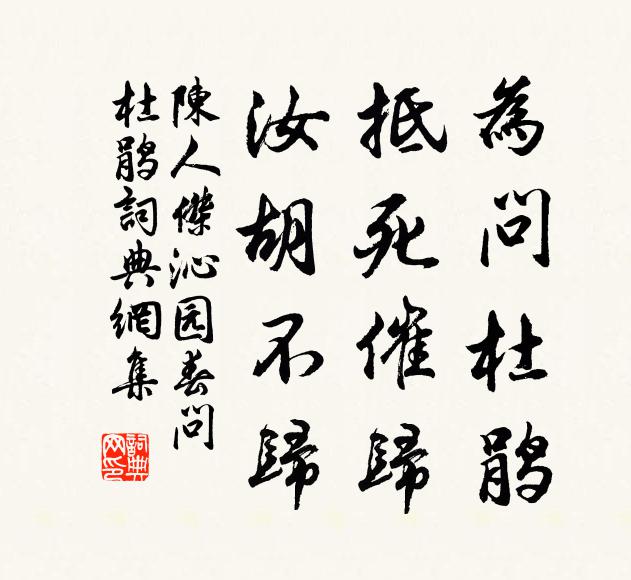 為問杜鹃
抵死催歸
汝胡不歸
陳人傑沁园春問
杜鹃詞典網集
詞典
网印